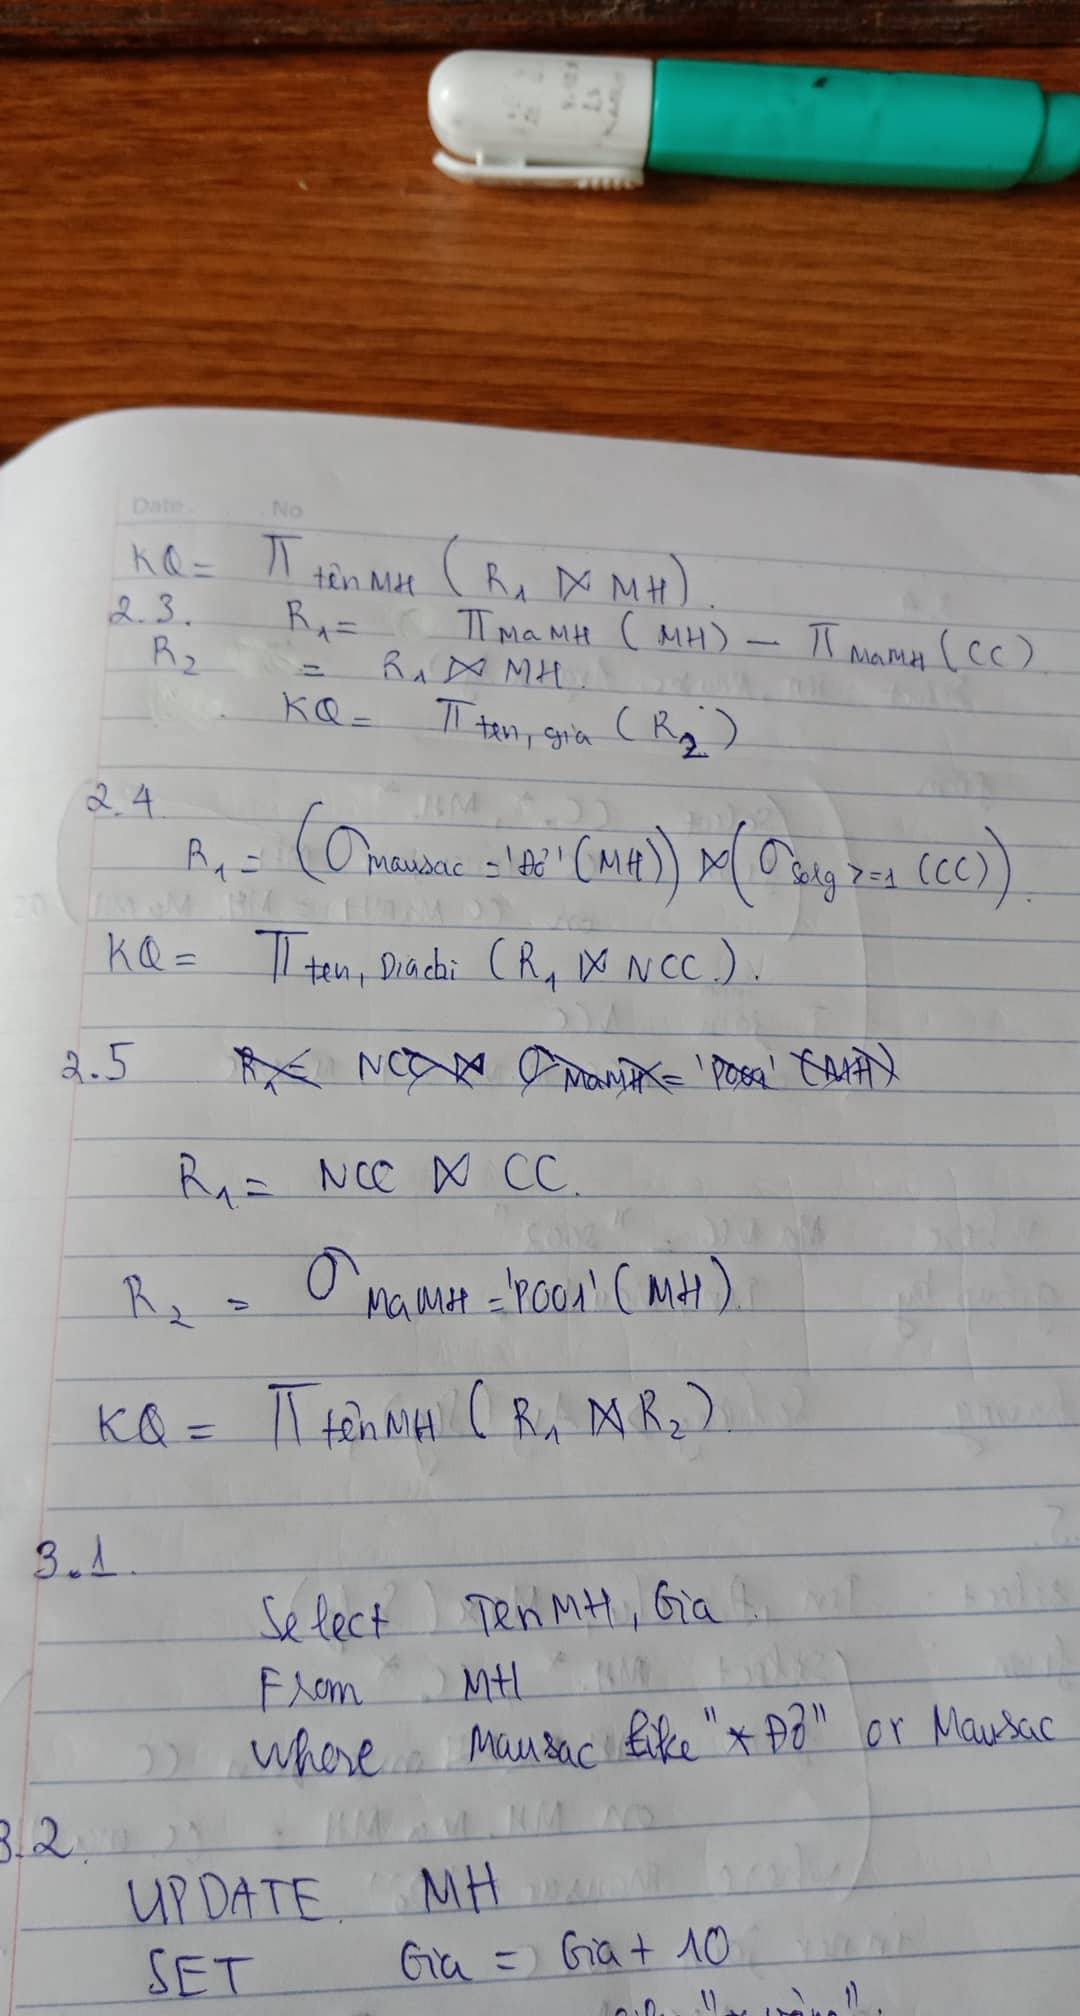 Date. No
KQ = π tênMH (R1 ⋈ MH).
2.3. R1 = π MaMH (MH) - π MaMH (CC)
R2 = R1 ⋈ MH.
KQ = π ten, gia (R2)
2.4
R1 = (σ mausac = 'Đỏ' (MH)) ⋈ (σ solg >= 1 (CC)).
KQ = π ten, Diachi (R1 ⋈ NCC).
2.5 R1 = NCC ⋈ σ MaMH = 'P001' (MH)
R1 = NCC ⋈ CC.
R2 = σ MaMH = 'P001' (MH).
KQ = π tênMH (R1 ⋈ R2).
3.1.
Select TenMH, Gia.
From MH
where Mausac like "*Đỏ" or Mausac
3.2.
UPDATE MH
SET Gia = Gia + 10